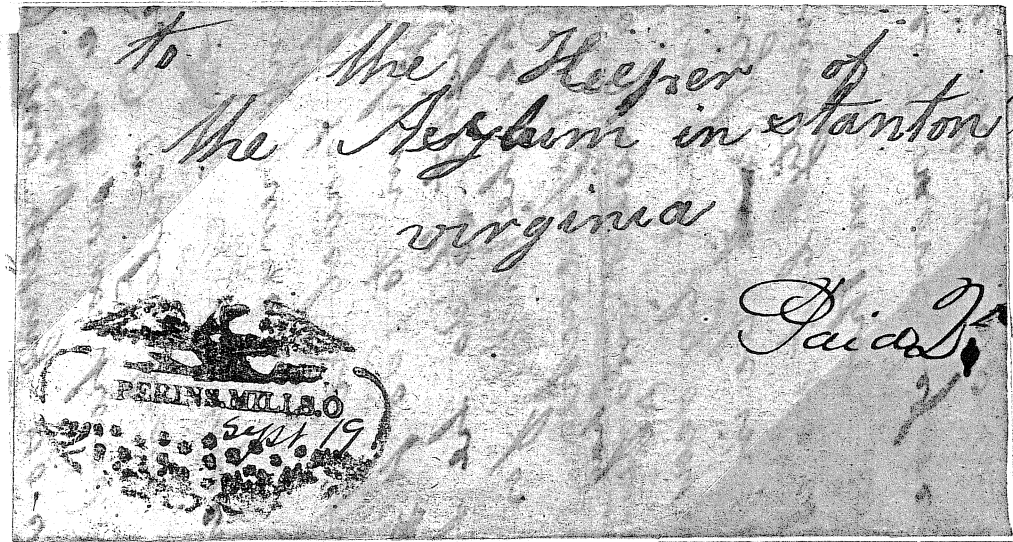 to the Keeper of
the Asylum in stanton
virginia
Paid
PERIN'S.MILLS.O
Sept 19